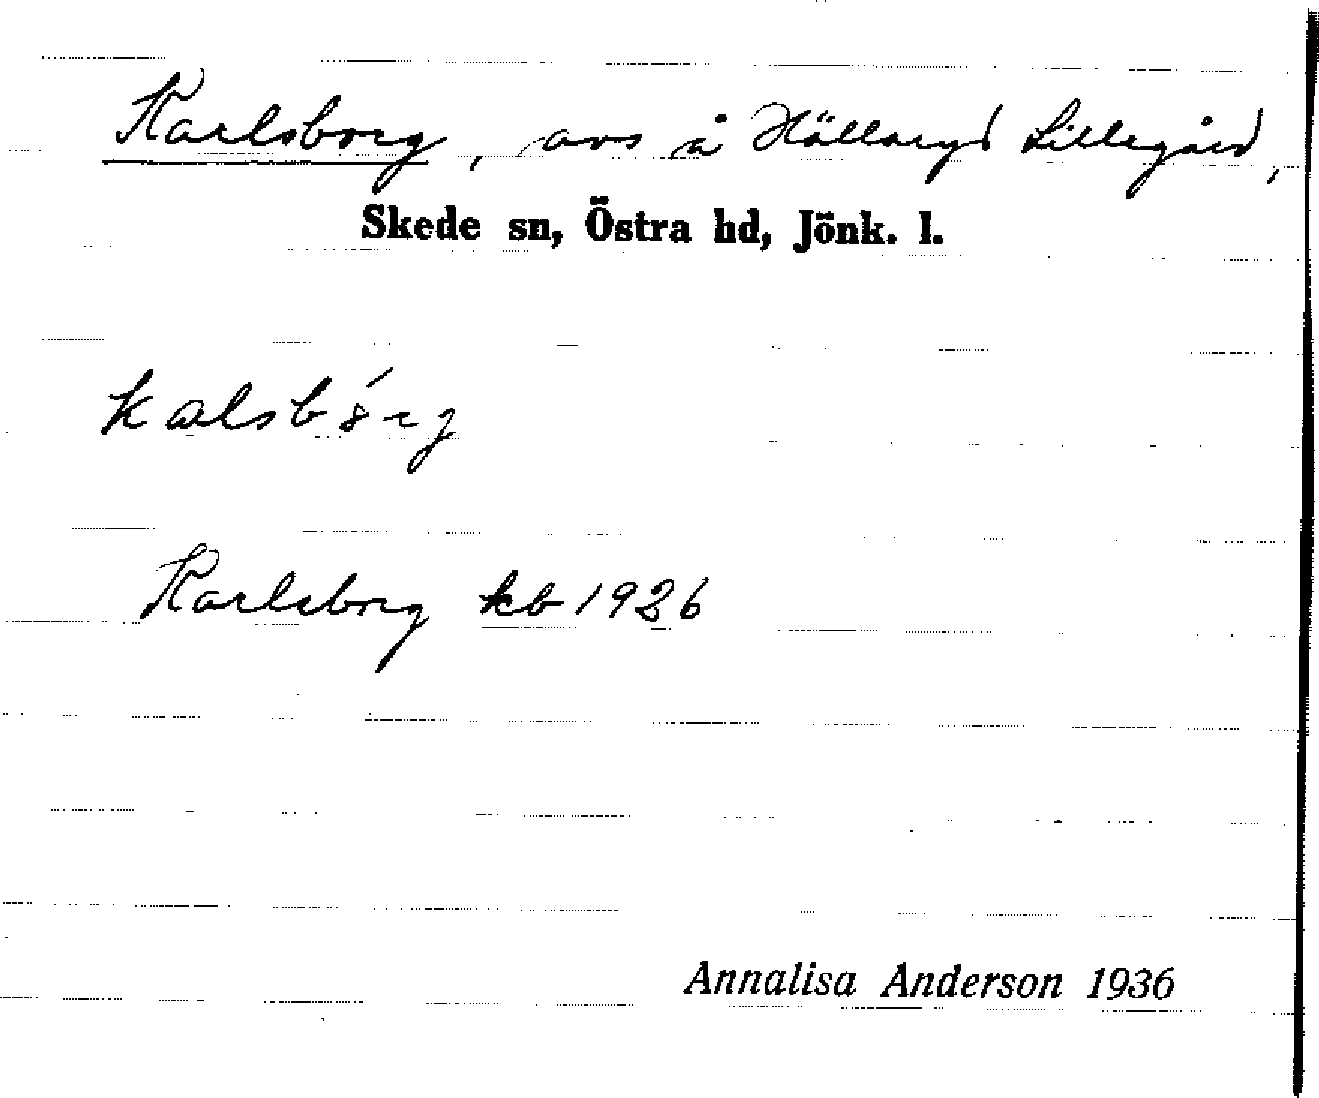 Karlsborg, avs å Hällaryd Lillegård,
Skede sn, Östra hd, Jönk. l.
Karlsborg kb 1926
Annalisa Anderson 1936